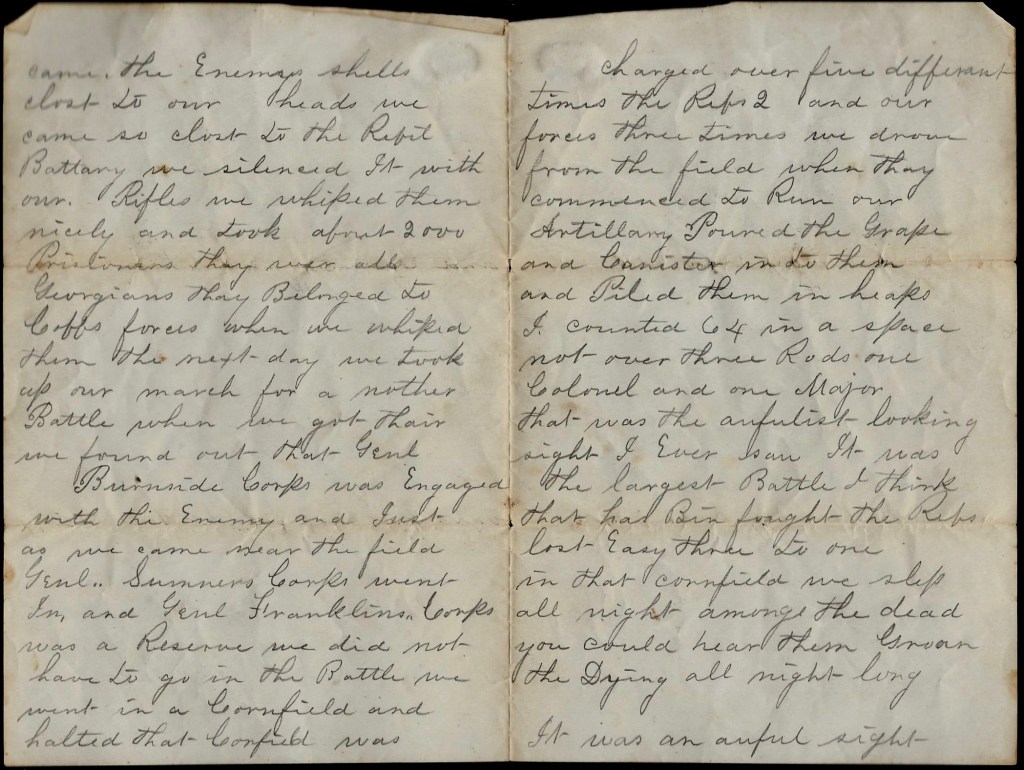 came. the Enemys shells
clost to our heads we
came so clost to the Rebil
Battary we silenced It with
our. Rifles we whiped them
nicely and took about 2000
Prisioners thay wer all
Georgians thay Belonged to
Cobbs forces when we whiped
them the next day we took
up our march for a nother
Battle when we got thair
we found out that Genl
Burnside Corps was Engaged
with the Enemy and Just
as we came near the field
Genl.. Sumners Corps went
In, and Genl Franklins.. Corps
was a Reserve we did not
have to go in the Battle we
went in a Cornfield and
halted that Confield was
charged over five differant
times the Rebs 2 and our
forces three times we drove
from the field when thay
commenced to Run our
Artillary Poured the Grape
and Canister in to them
and Piled them in heaps
I. counted 64 in a space
not over three Rods one
Colonel and one Major
that was the aufulist looking
sight I Ever saw It was
the largest Battle I think
that has Bin fought the Rebs
lost Easy three to one
in that cornfield we slep
all night amonge the dead
you could hear them Groan
the Dying all night long
It was an auful sight